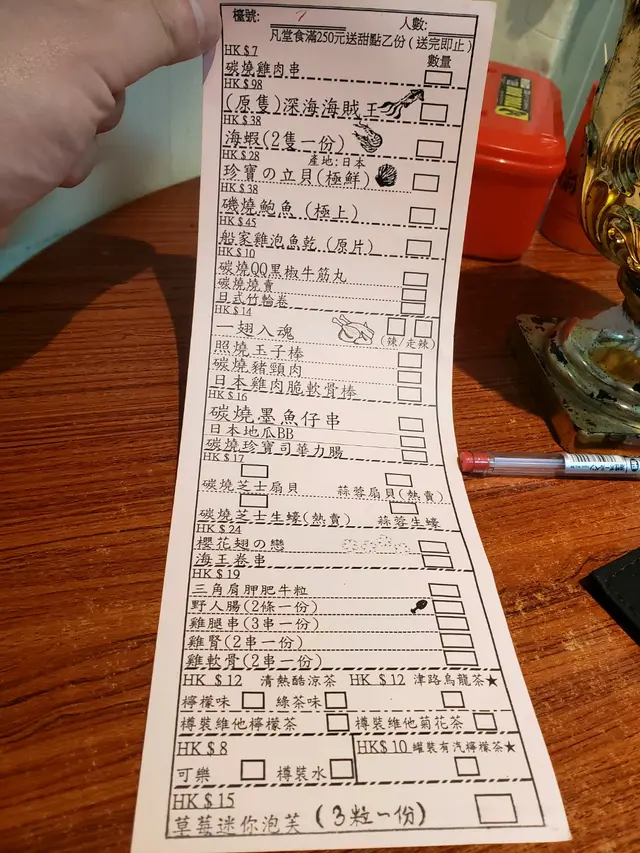 檯號: 7 人數:
凡堂食滿250元送甜點乙份(送完即止)
HK $ 7 數量
碳燒雞肉串
HK $ 98
(原隻)深海海賊王
HK $ 38
海蝦(2隻一份)
HK $ 28 產地:日本
珍寶の立貝(極鮮)
HK $ 38
磯燒鮑魚 (極上)
HK $ 45
船家雞泡魚乾 (原片)
HK $ 10
碳燒QQ黑椒牛筋丸
碳燒燒賣
日式竹輪卷
HK $ 14
一翅入魂 (辣/走辣)
照燒玉子棒
碳燒豬頸肉
日本雞肉脆軟骨棒
HK $ 16
碳燒墨魚仔串
日本地瓜BB
碳燒珍寶司華力腸
HK $ 17
碳燒芝士扇貝 蒜蓉扇貝(熱賣)
碳燒芝士生蠔(熱賣) 蒜蓉生蠔
HK $ 24
櫻花翅の戀
海王卷串
HK $ 19
三角肩胛肥牛粒
野人腸(2條一份)
雞腿串(3串一份)
雞腎(2串一份)
雞軟骨(2串一份)
HK $ 12 清熱酷涼茶 HK $ 12 津路烏龍茶★
檸檬味 綠茶味
樽裝維他檸檬茶 樽裝維他菊花茶
HK $ 8 HK$ 10 罐裝有汽檸檬茶★
可樂 樽裝水
HK $ 15
草莓迷你泡芙 (3粒一份)